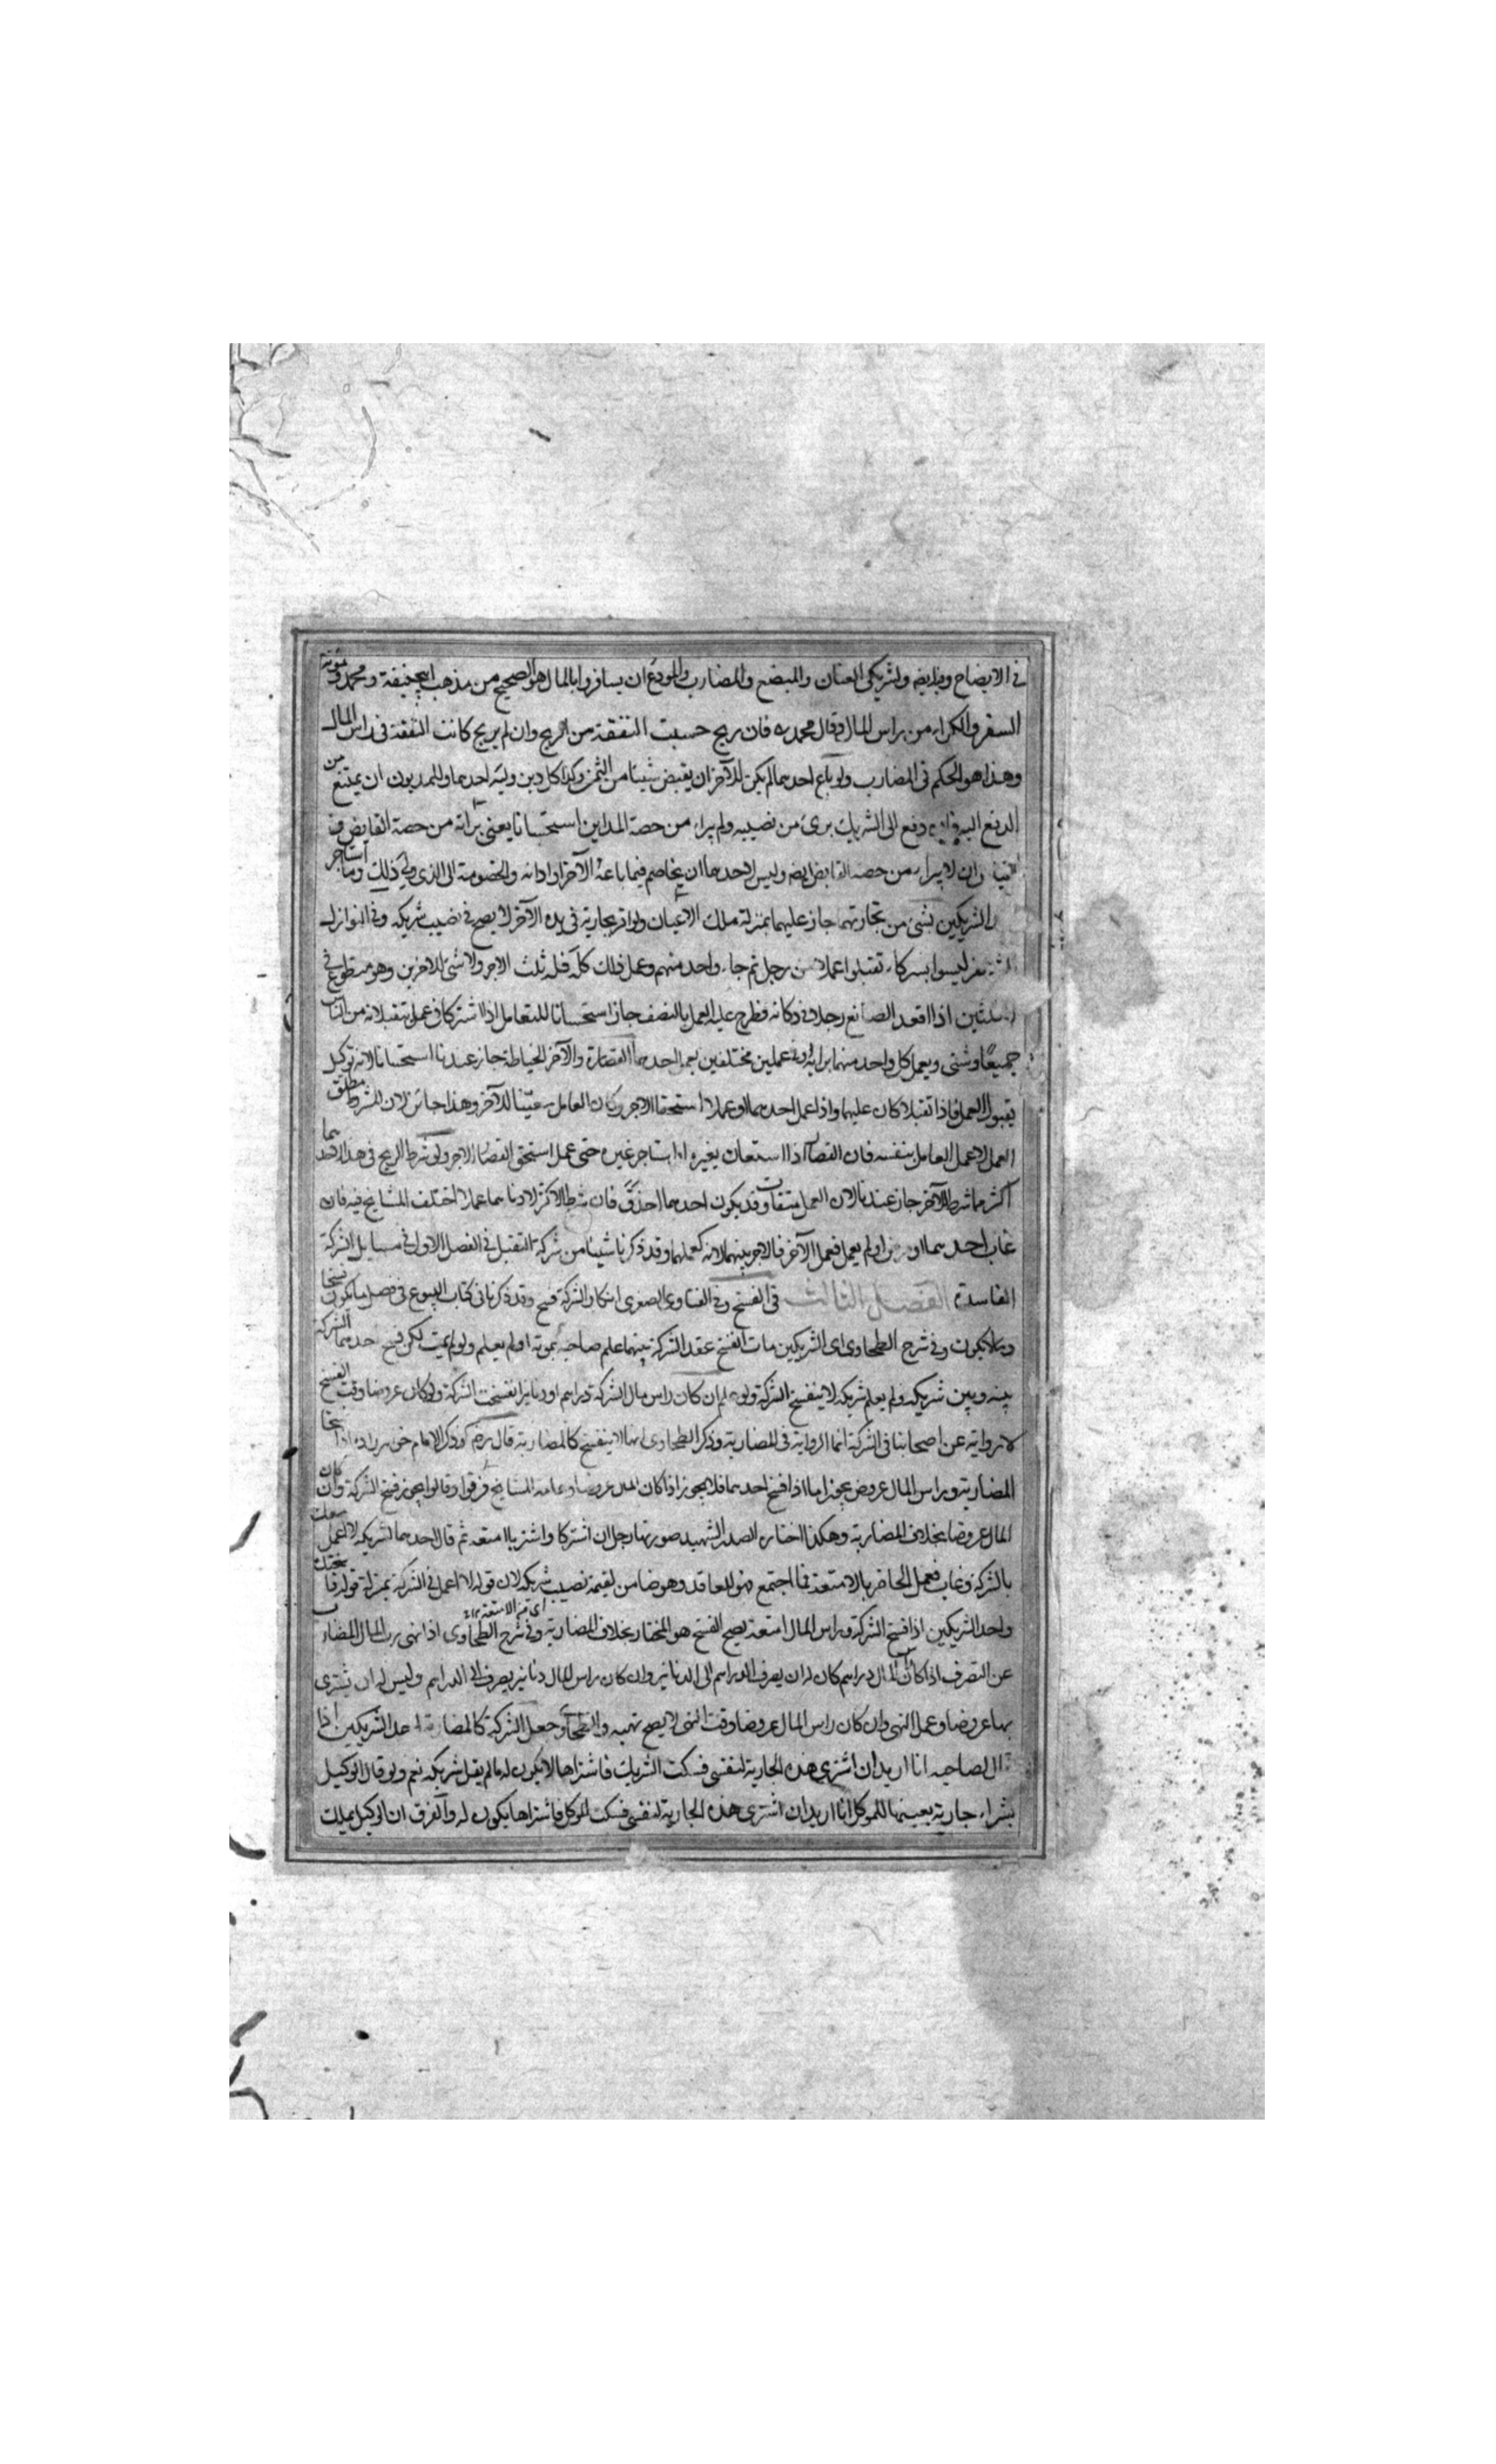 في الايضاح وفيه ايضا ولشريكى العنان والمبضع والمضارب والمودع ان يسافروا بالمال هو الصحيح من مذهب ابيحنيفة ومحمد ومؤنة
السفر والكراء من راس المال وقال محمد ره فان ربح حسبت النفقة من الربح وان لم يربح كانت النفقة في راس المال
وهذا هو الحكم في المضارب ولو باع احدهما لم يكن للآخر ان يقبض شيئا من الثمن وكذا كل دين وليه احدهما وللمديون ان يمتنع من
الدفع اليه دفع الى الشريك برئ من نصيبه ولم يبراء من حصة المداين استحسانا يعنى براته من حصة القابض وفي
وان لا يبراء من حصة القابض ايضا وليس لاحدهما ان يخاصم فيما باعه الآخر او ادانه والخصومة الى الذى ولي ذلك وما استاجر
الشريكين بشئ من تجارتهما جاز عليهما بمنزلة ملك الاعيان ولو اقر بجارية في يده الآخر لا يصح في نصيب شريكه وفي النوازل
نفر ليسوا بشركاء تقبلوا عملا من رجل ثم جاء واحد منهم وعمل ذلك كله فله ثلث الاجر ولا شئ للآخرين وهو متطوع في
الثلثين اذا اقعد الصانع رجلا في دكانه فطرح عليه العمل بالنصف جاز استحسانا للتعامل اذا اشتركا في عمل يتقبلانه من الناس
جميعًا وشتى ويعمل كل واحد منهما برايه في عملين مختلفين يعمل احدهما القصارة والآخر الخياطة جاز عندنا استحسانا لانه توكيل
بقبول العمل فاذا تقبلا كان عليهما واذا عمل احدهما او عملا استحقا الاجر وكان العامل معينا للآخر وهذا جائز لان المشروط مطلق
العمل لا عمل العامل بنفسه فان القصار اذا استعان بغيره او استاجر غيره حتى عمل استحق القصار الاجر ولو شرط الربح في هذا لاحدهما
اكثر مما شرط للآخر جاز عندنا لان العمل متفاوت وقد يكون احدهما احذق فان شرطا الاكثر لادناهما عملا اختلف المشايخ فيه فان
غاب احدهما او مرض او لم يعمل فعمل الآخر فالاجر بينهما لانه كعملهما وقد ذكرنا شيئا من شركة التقبل في الفصل الاول في مسايل الشركة
الفاسدة الفصل الثالث في الفسخ وفي الفتاوى الصغرى انكار الشركة فسخ وقد ذكرنا في كتاب البيوع في فصل ما يكون فسخا
وما لا يكون وفي شرح الطحاوى اى الشريكين مات انفسخ عقد الشركة بينهما علم صاحبه بموته او لم يعلم ولو لم يمت لكن فسخ احدهما الشركة
بينه وبين شريكه ولم يعلم شريكه لا ينفسخ الشركة ولو علم ان كان راس مال الشركة دراهم او دنانير انفسخت الشركة ولو كان عروضا وقت الفسخ
لا رواية عن اصحابنا في الشركة انما الرواية في المضاربة وذكر الطحاوى انها لا ينفسخ كالمضاربة قال رضه وذكر الامام خواهرزاده اذا فسخا
المضاربة وراس المال عروض يجوز اما اذا فسخ احدهما فلا يجوز اذا كان المال عروضا وعامة المشايخ فرقوا وقالوا يجوز فسخ الشركة وان كان
المال عروضا بخلاف المضاربة وهكذا اختاره الصدر الشهيد صورتها رجلان اشتركا واشتريا امتعة ثم قال احدهما لشريكه لا اعمل معك
بالشركة وغاب فعمل الحاضر بالامتعة فما اجتمع فهو للعاقد وهو ضامن لقيمة نصيب شريكه لان قوله لا اعمل في الشركة بمنزلة قوله فاسختك
واحد الشريكين اذا فسخ الشركة وراس المال امتعة يصح الفسخ هو المختار بخلاف المضاربة وفي شرح الطحاوى اذا نهى رب المال المضارب
اى من الامتعة
عن التصرف اذا كان المال دراهم كان له ان يصرف الدراهم الى الدنانير وان كان راس المال دنانير يصرف الى الدراهم وليس له ان يشترى
بها عروضا وعمل النهى وان كان راس المال عروضا وقت النهى لا يصح نهيه والطحاوى جعل الشركة كالمضاربة احد الشريكين اذا
قال لصاحبه انا اريد ان اشترى هذه الجارية لنفسى فسكت الشريك فاشتراها لا يكون له ما لم يقل شريكه نعم ولو قال الوكيل
بشراء جارية بعينها للموكل انا اريد ان اشترى هذه الجارية لنفسى فسكت الموكل فاشتراها يكون له والفرق ان الوكيل يملك